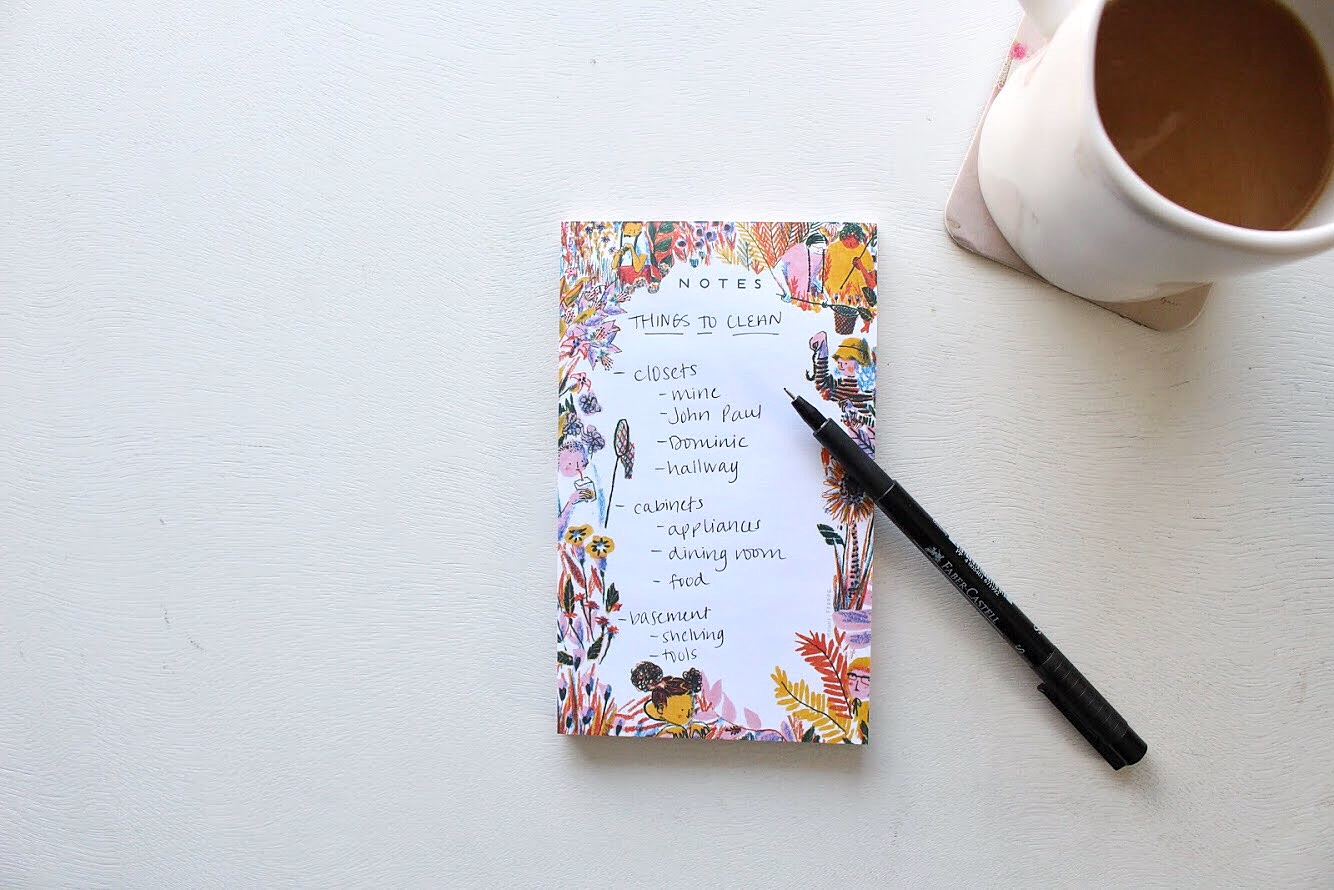 NOTES
THINGS TO CLEAN
- closets
- mine
- John Paul
- Dominic
- hallway
- cabinets
- appliances
- dining room
- food
- basement
- shelving
- tools
FABER-CASTELL
S